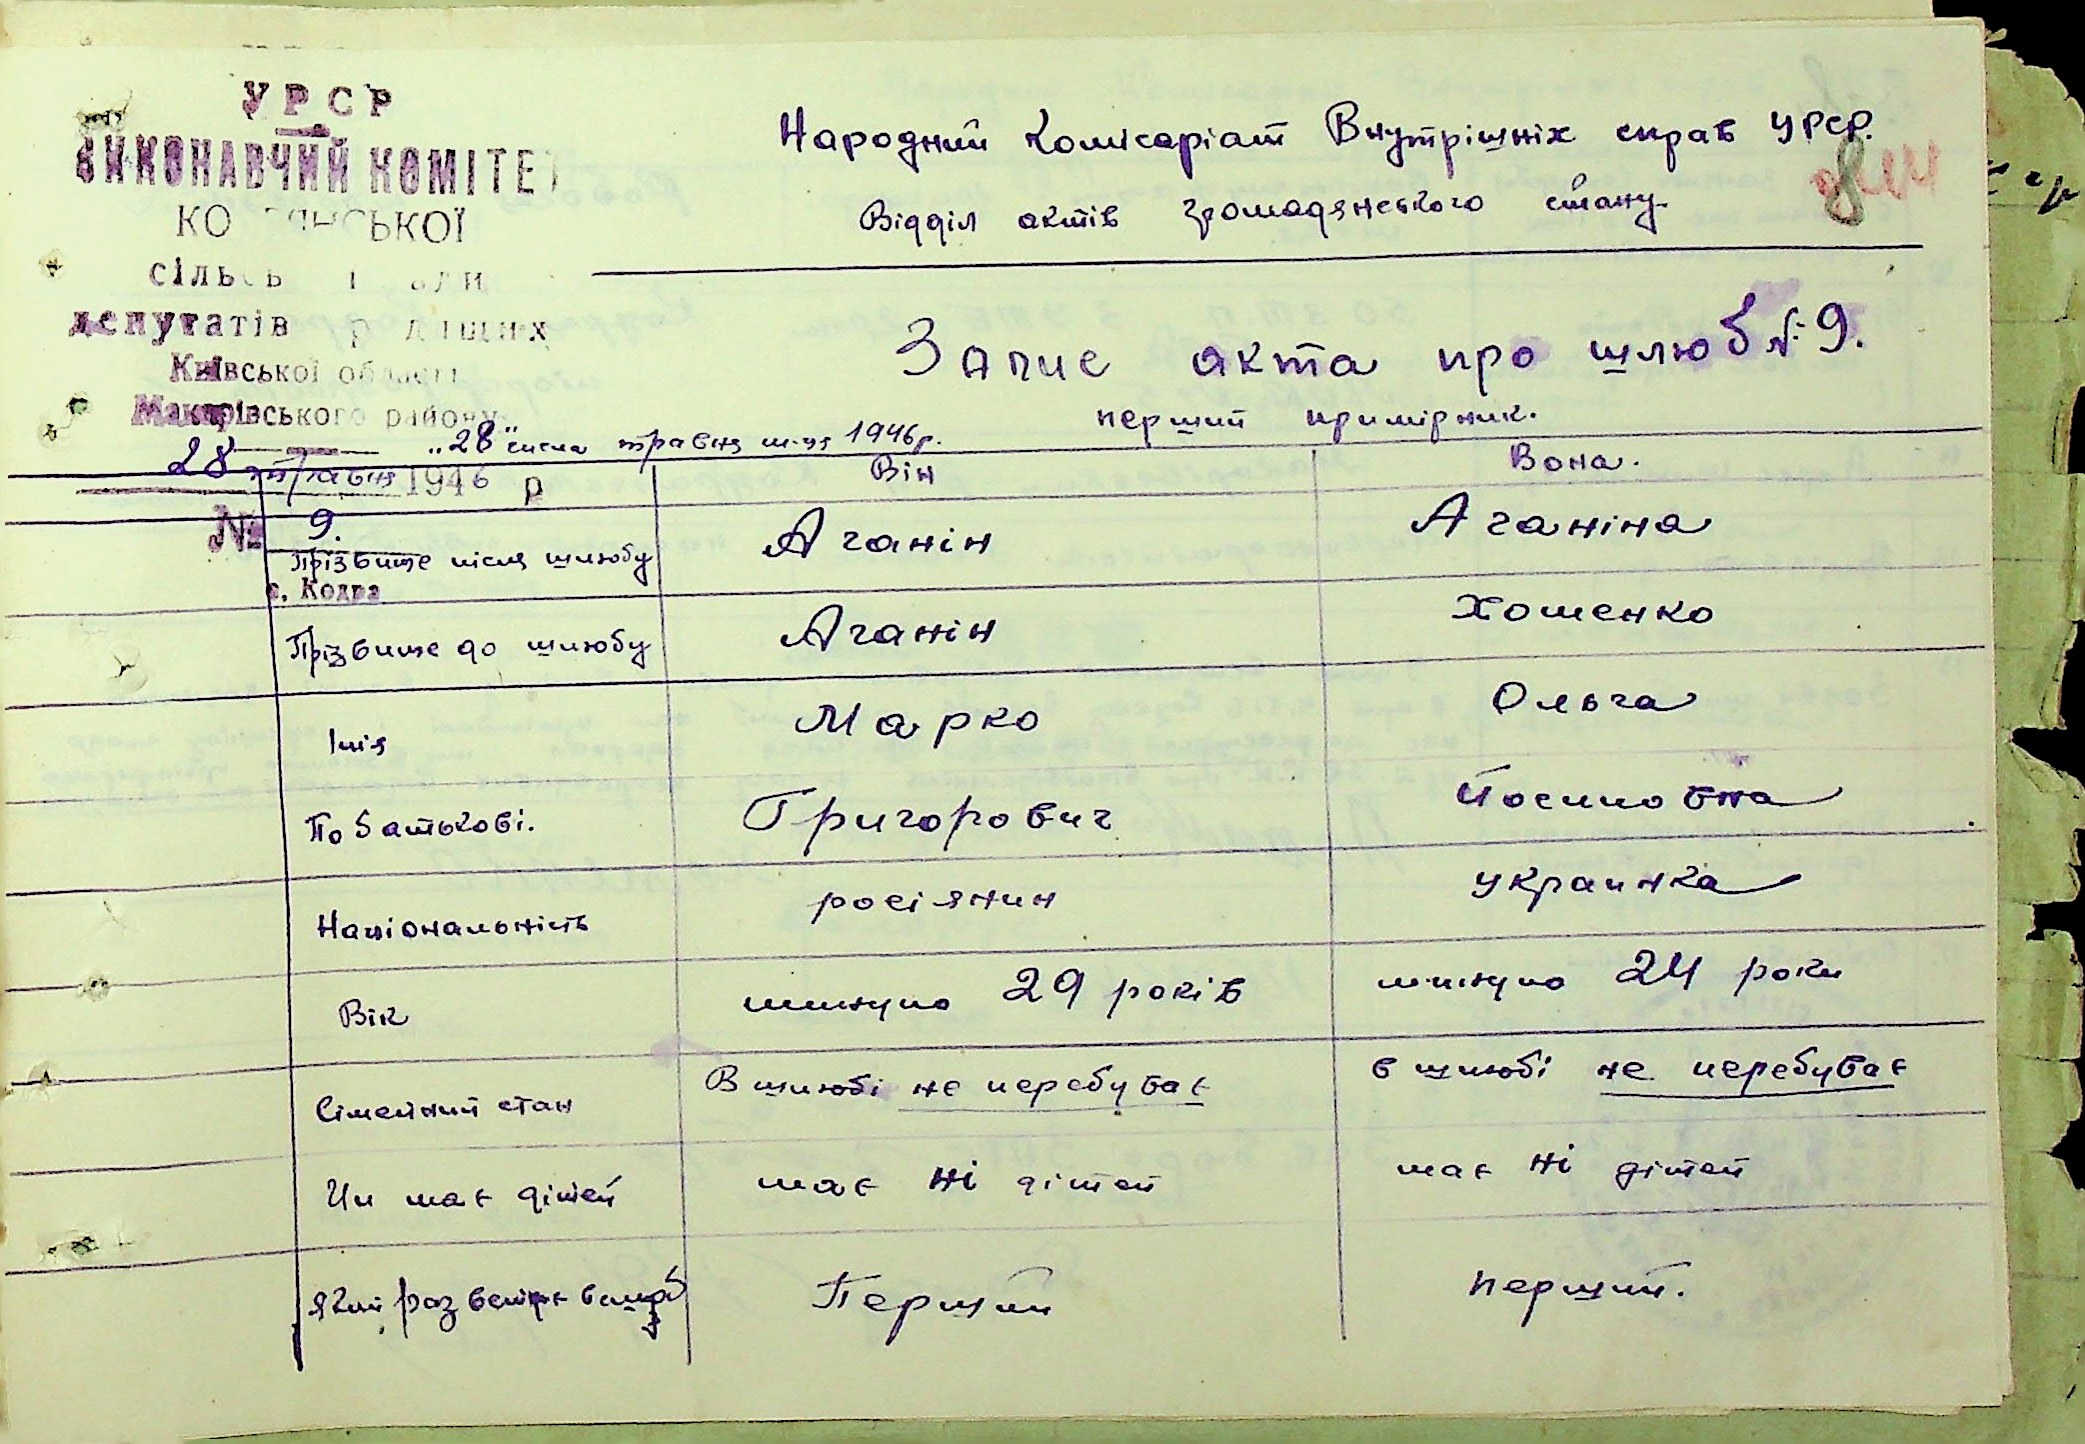 УРСР
ВИКОНАВЧИЙ КОМІТЕТ
депутатів
Київської області
Макарівського району
28 травня 1946 р
№ 9.
с. Кодра
Народний Комісаріат Внутрішніх справ УРСР.
Відділ актів громадянського стану.
Запис акта про шлюб № 9.
перший примірник.
„28" числа травня м-ця 1946 р.
Він Вона.
Прізвище після шлюбу Аганін Аганіна
Прізвище до шлюбу Аганін Хоменко
Імя Марко Ольга
По батькові. Григорович Йосиповна
Національність росіянин украинка
Вік минуло 29 років минуло 24 роки
Сімейний стан В шлюбі не перебуває в шлюбі не перебуває
Чи має дітей має ні дітей має ні дітей
який раз вступає Перший перший.